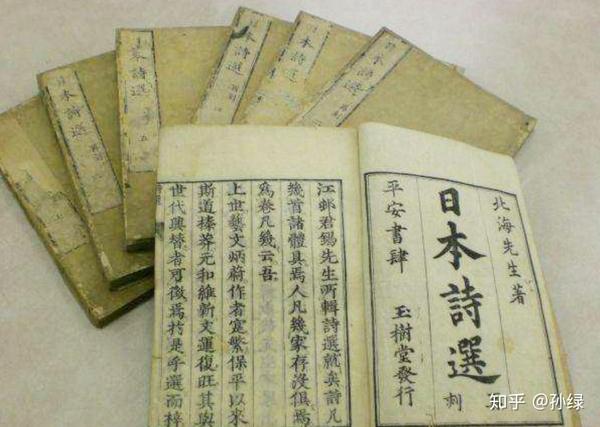 日本詩選
日本詩選 五
日本詩選
日本詩選
日本詩選
北海先生著
日本詩選 刻
平安書肆 玉樹堂發行
江邨君錫先生所輯詩選就矣詩凡
幾首諸體具焉人凡幾家存沒俱焉
爲卷凡幾云吾
上世藝文炳蔚作者寔繁保平以來
斯道榛莽元和維新文運復旺其與
世代興替者可徵焉於是乎選而梓
知乎 @孙绿